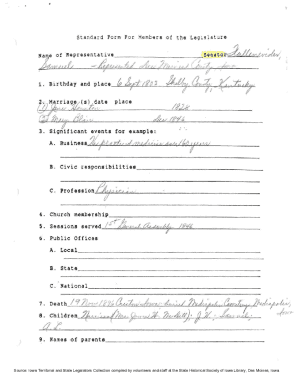 Standard Form For Members of the Legislature
Name of Representative Senator Fullenwider,
Samuel - Represented Des Moines County, Iowa
1. Birthday and place 6 Sept 1803 Shelby County, Kentucky
2. Marriage (s) date place
(1) Jane Houston 1828
(2) Mary Blair Dec 1842
3. Significant events for example:
A. Business He practiced medicine over 60 years
B. Civic responsibilities
C. Profession Physician
4. Church membership
5. Sessions served 1st General Assembly 1846
6. Public Offices
A. Local
B. State
C. National
7. Death 19 Nov 1896 buried Mediapolis Cemetery Mediapolis,
8. Children
9. Names of parents
Source: Iowa Territorial and State Legislators Collection compiled by volunteers and staff at the State Historical Society of Iowa Library, Des Moines, Iowa